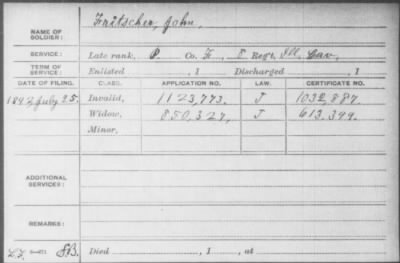 NAME OF SOLDIER:
Fritscher, John,
SERVICE: Late rank, P. Co. F, 8 Regt. Ill. Cav.
TERM OF SERVICE: Enlisted , 1 Discharged , 1
DATE OF FILING. CLASS. APPLICATION NO. LAW. CERTIFICATE NO.
1892 July 25. Invalid, 1123,773. J 1032,887.
Widow, 850,327, J 613,399.
Minor,
ADDITIONAL SERVICES:
REMARKS:
Died , 1 , at